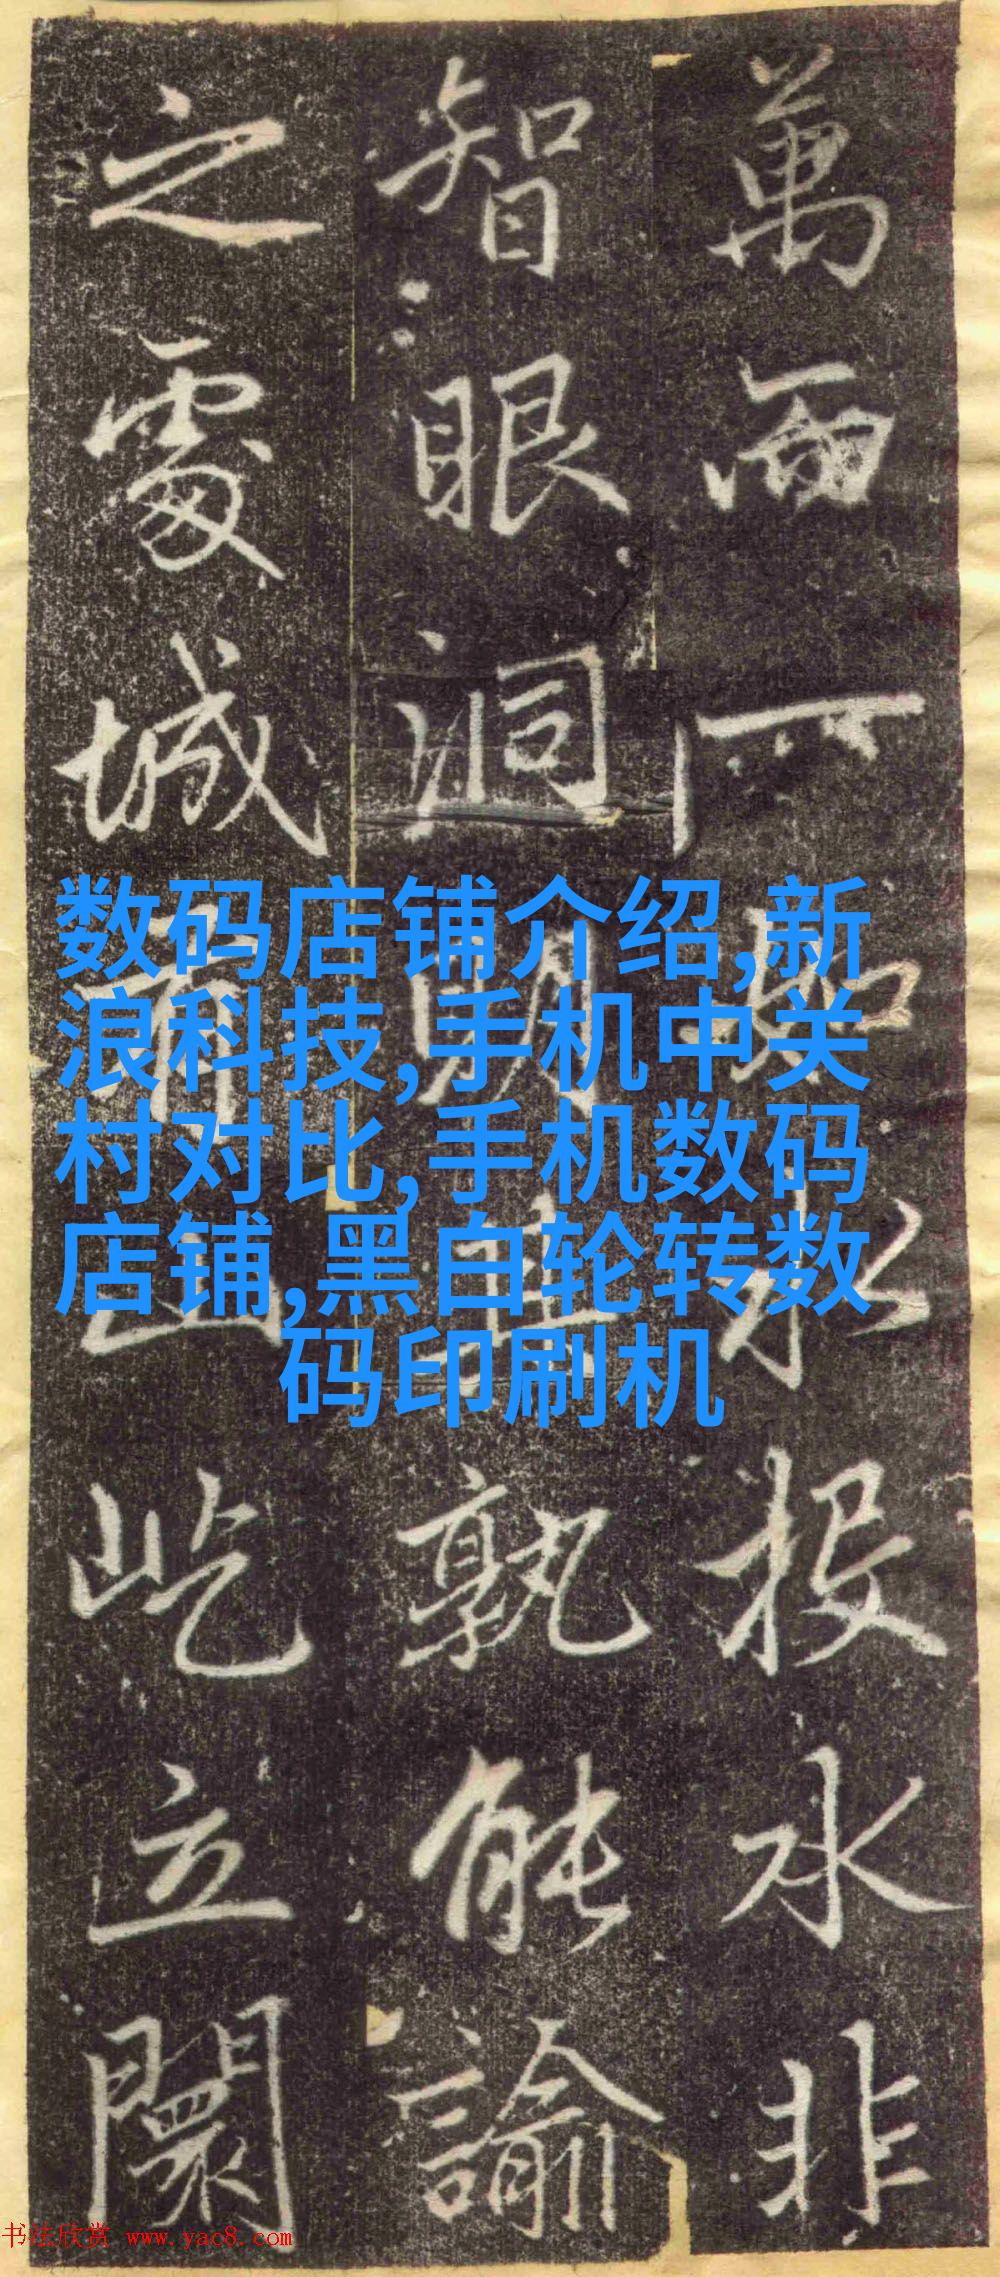 萬而一如水投水非
智眼洞明孰能諭
之處城山屹立闤
数码店铺介绍,新
浪科技,手机中关
村对比,手机数码
店铺,黑白轮转数
码印刷机
书法欣赏 www.yac8.com